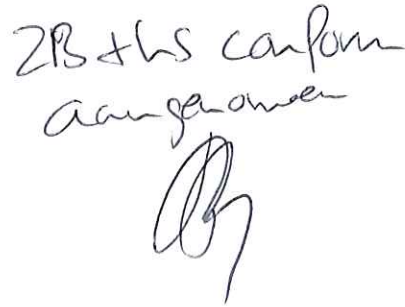 ZB + hs conform
aangenomen